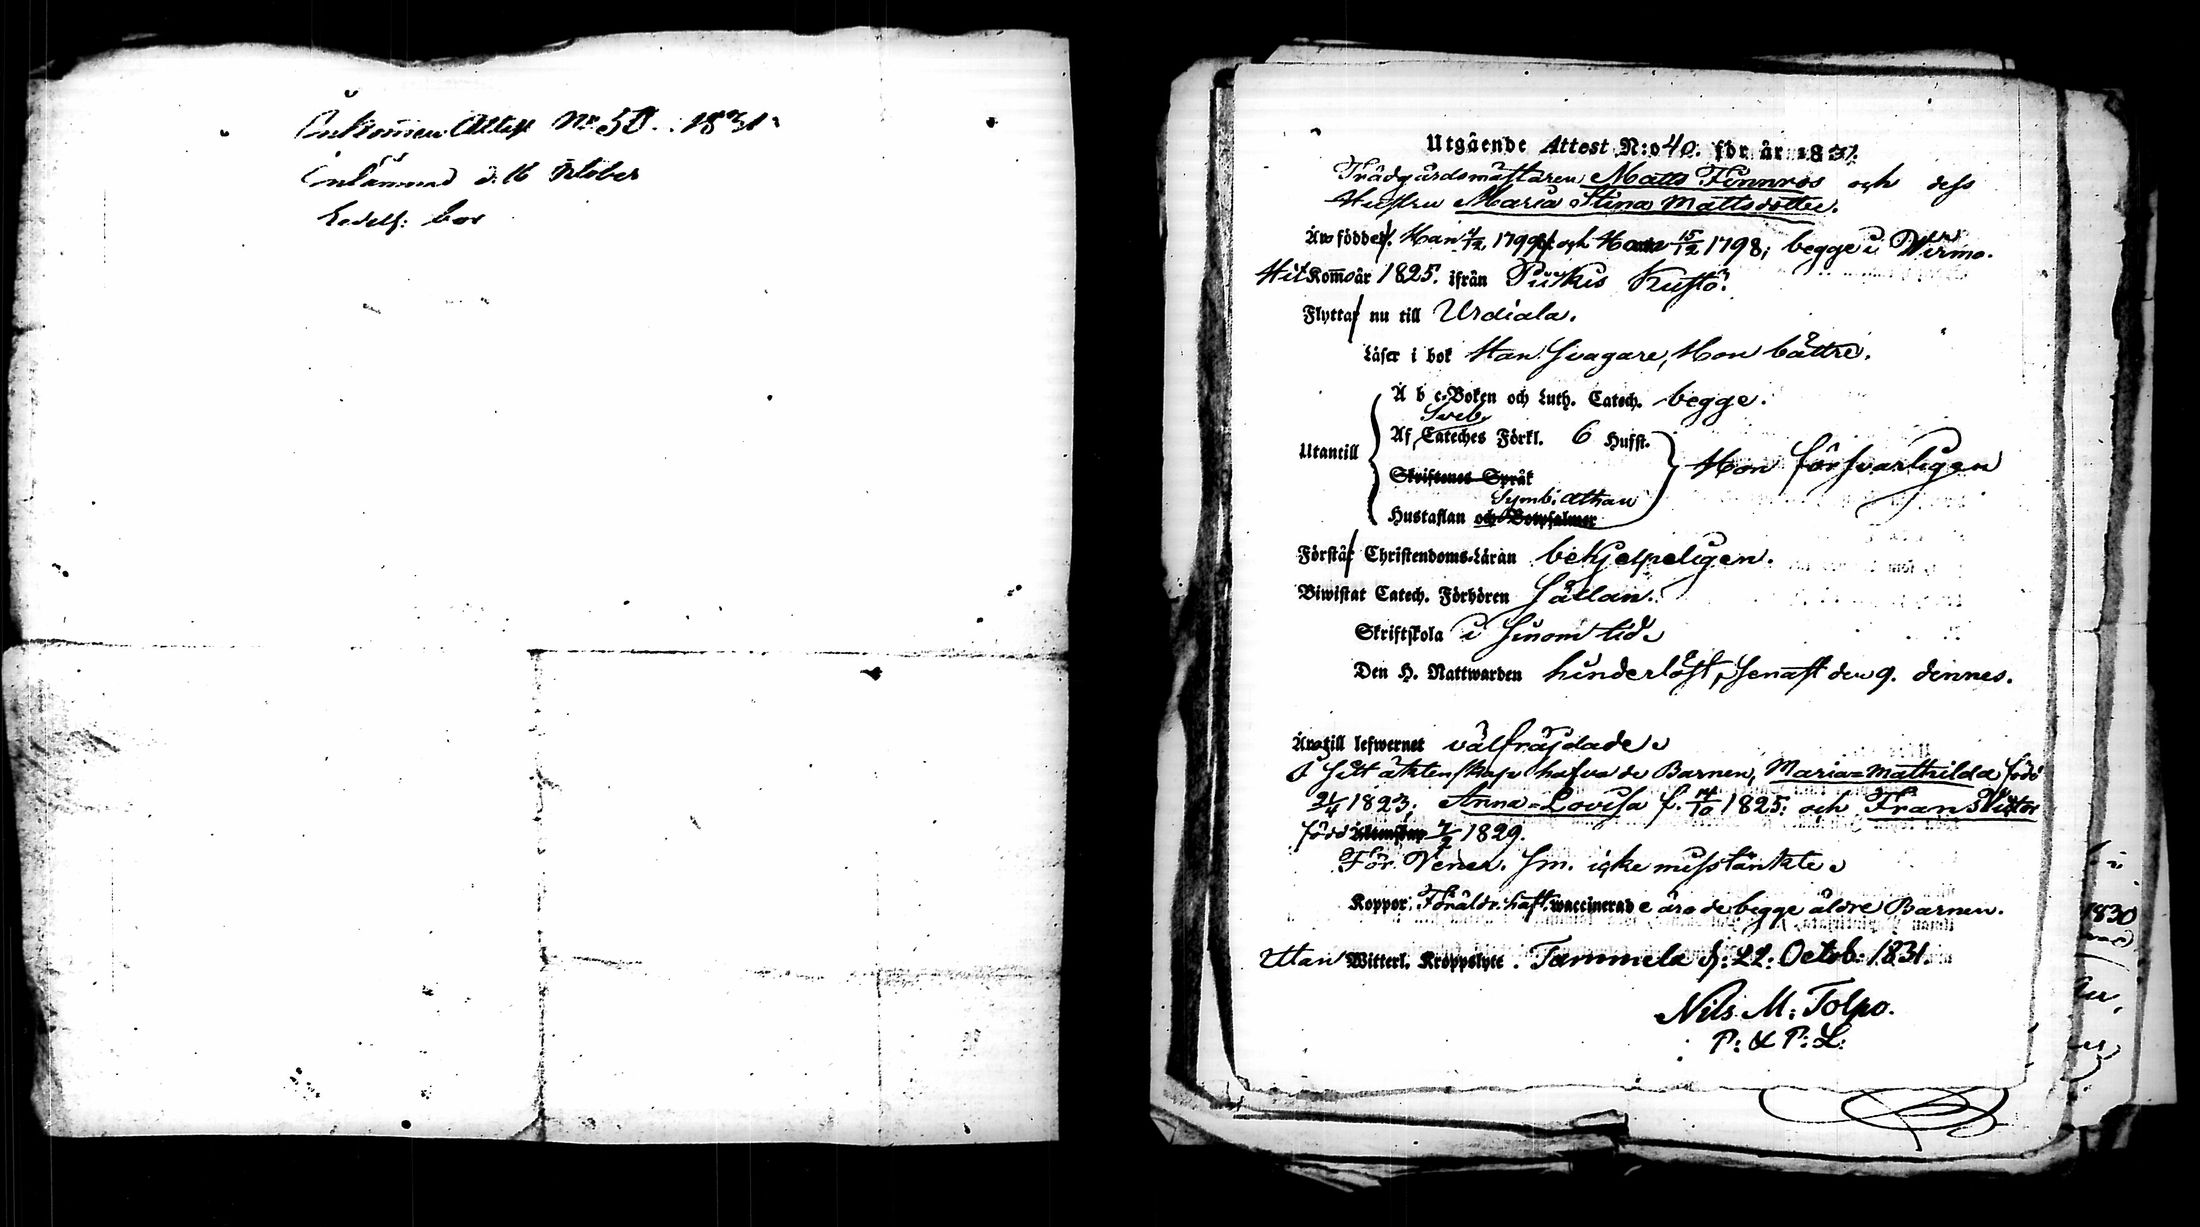 Inkommen Attest No 50. 1831
Inlämnad d. 16 October
Utgående Attest N:o 40. för år 1831.
Trädgårdsmästaren Matts Finnros och dess
Hustru Maria Stina Mattsdotter.
Äro födde, Han 4/2 1799 och Hon 15/12 1798; begge i Wirmo.
Hit Kommo år 1825. ifrån Puikis Kustö.
Flytta nu till Urdiala.
Läser i bok Han svagare, Hon bättre.
A b c-Boken och Luth. Catech. begge.
Sveb.
Utantill Af Cateches Förkl. 6 Hufst. Hon försvarligen
Skriftenes Språk
Symb. Athan
Hustaflan och Botpsalmer
Förstå Christendoms-Läran behjelpeligen.
Biwistat Catech. Förhören sällan.
Skriftskola i sinom tid.
Den H. Nattwarden hinderlöst, senast den 9. dennes.
Äro till lefwernet välfräjdade.
I sitt äktenskap hafva de Barnen, Maria-Mathilda född
21/4 1823; Anna-Lovisa f. 14/10 1825; och Frans Victor
född 7/2 1829.
För Vener. sm. icke misstänkte.
Koppor Föräldr. haft. waccinerade äro de begge äldre Barnen.
Utan Witterl. Kroppslyte. Tammela d. 22. Octob. 1831.
Nils M. Tolpo.
P: & P: L:
1830